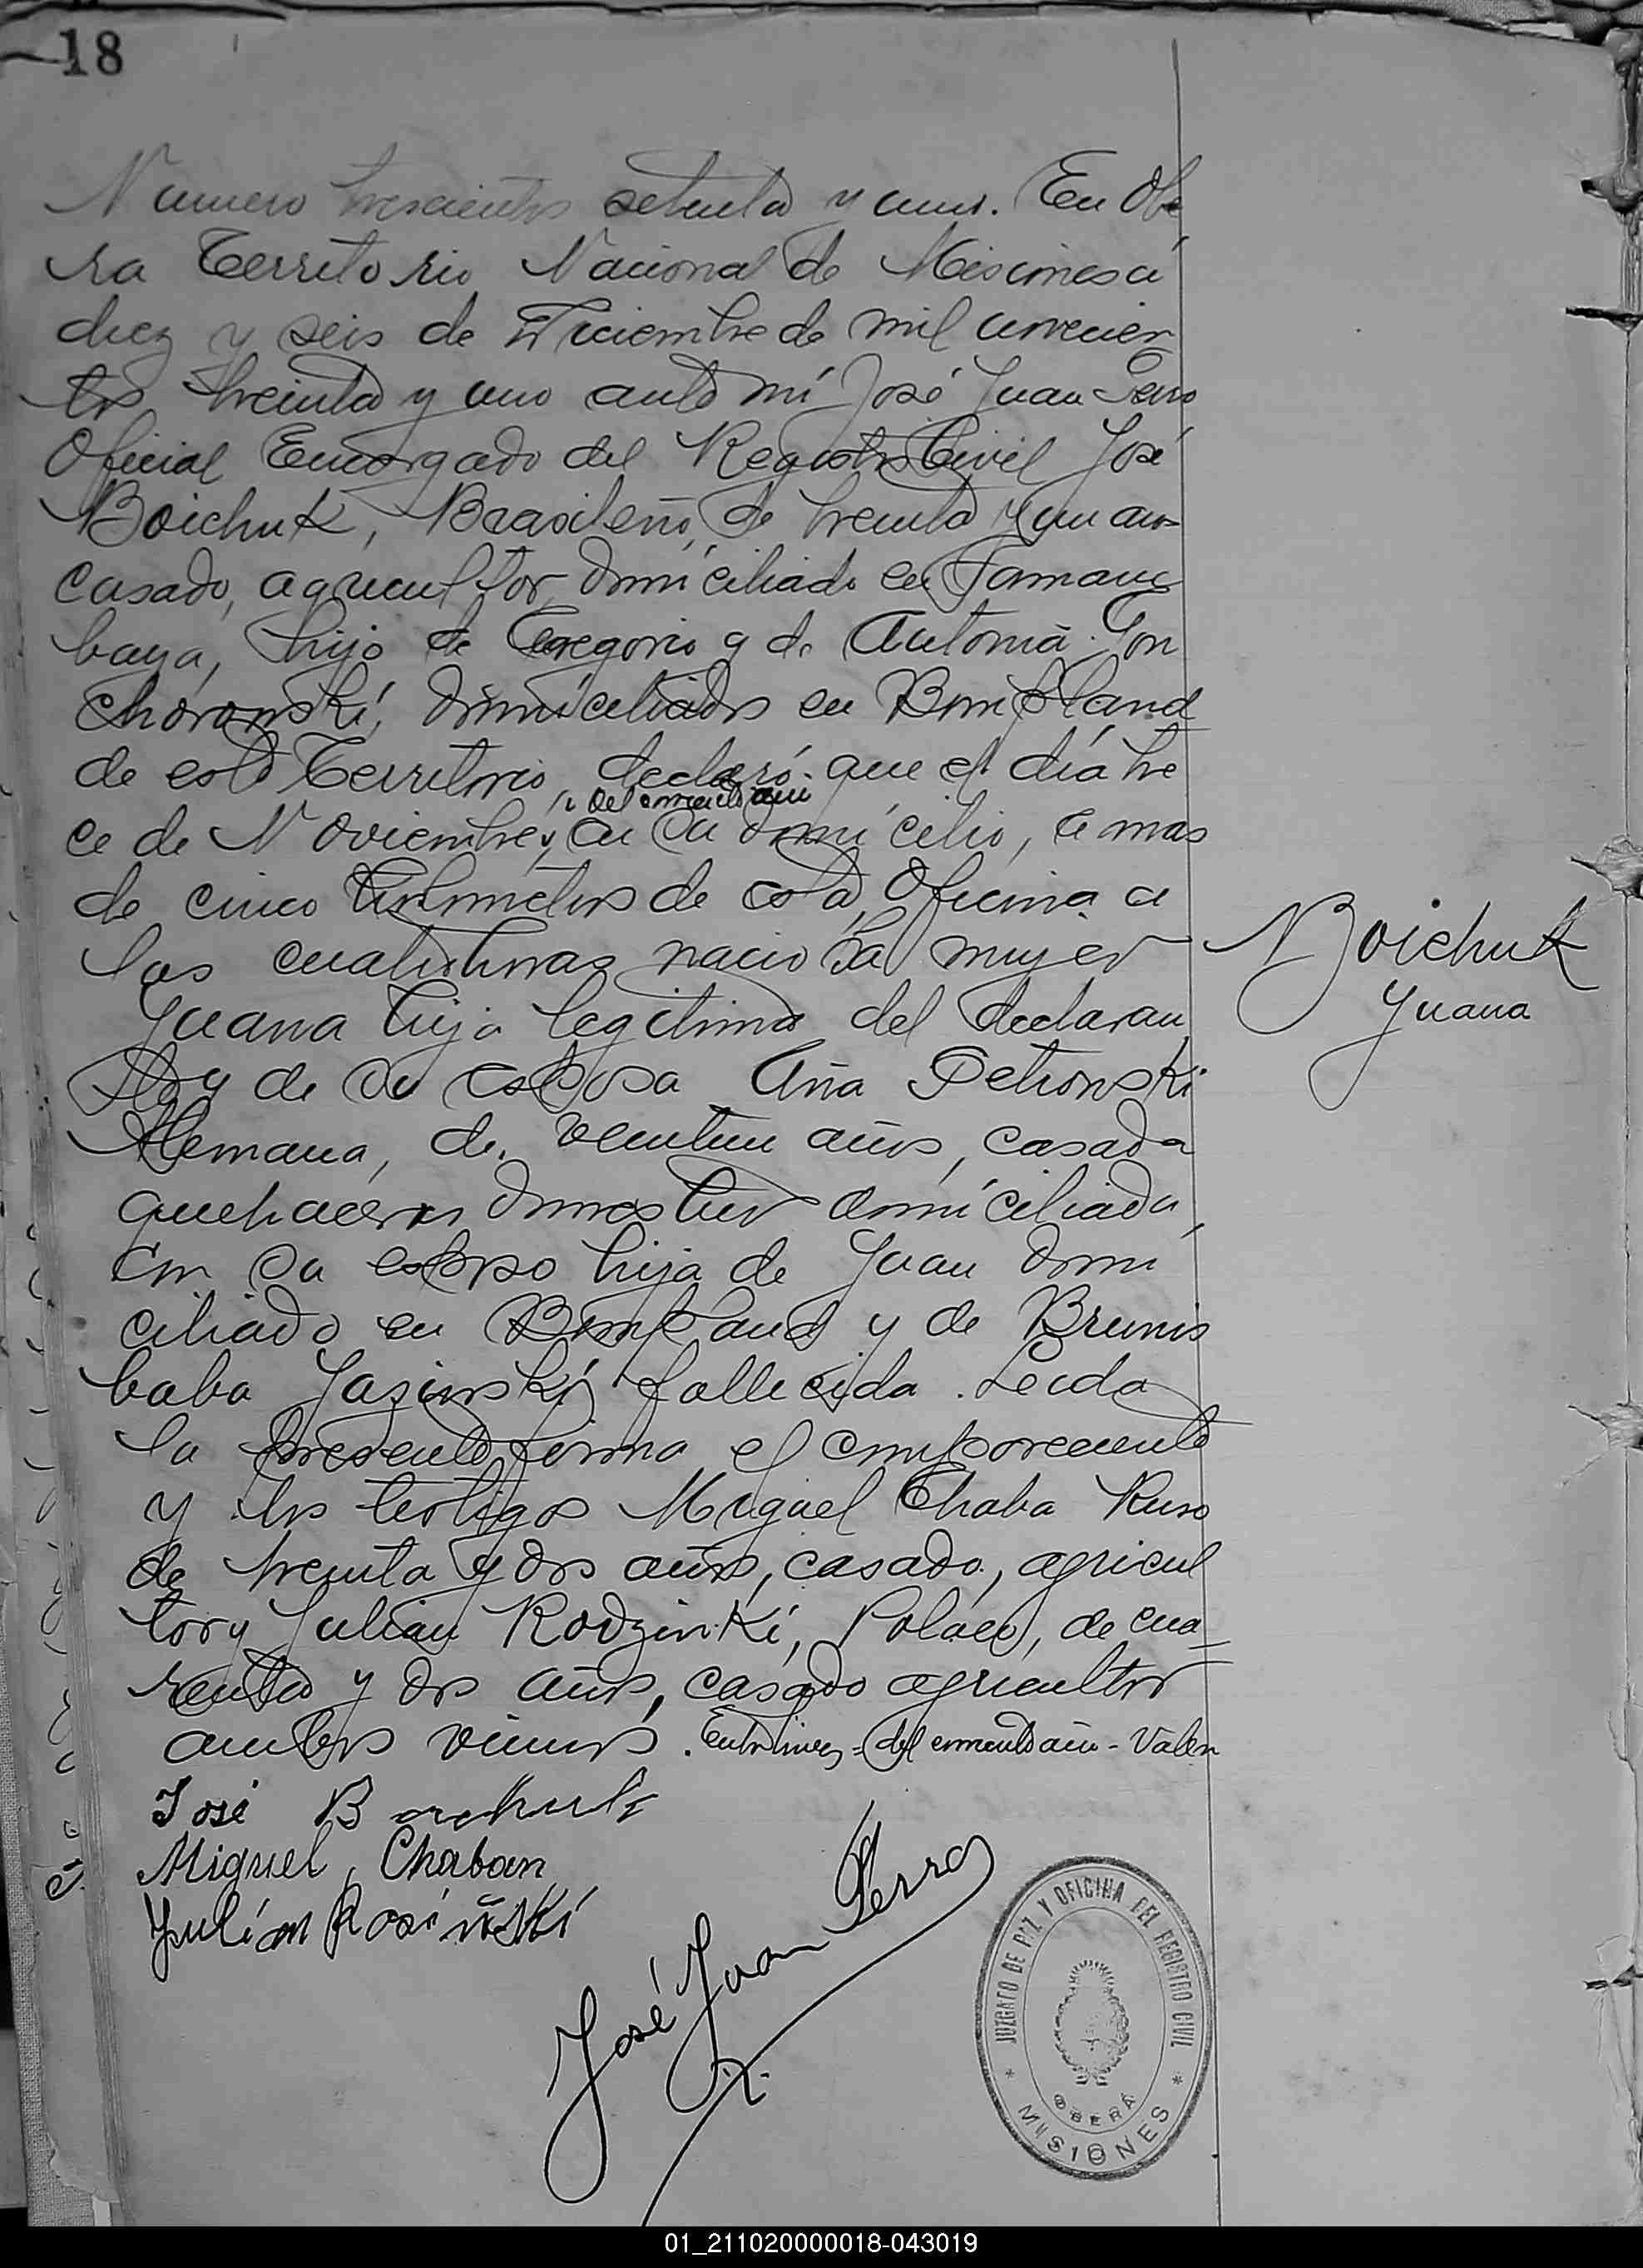 18
Numero trescientos setenta y uno. En Obe
ra Territorio Nacional de Misiones a
diez y seis de Diciembre de mil novecien
tos treinta y uno ante mí José Juan Perro
Oficial Encargado del Registro Civil José
Boichuk, Brasileño, de treinta y un años
casado, agricultor, domiciliado en Tamang
baya, hijo de Gregorio y de Antonia Gon
choronski, domiciliados en Bompland
de este Territorio, declaró: que el día tre
del corriente año
ce de Noviembre, en su domicilio, a mas
de cinco kilometros de esta Oficina a
las cuatro horas nacio la mujer
Juana hija legitima del declaran
te y de su esposa Ana Petronski
Alemana, de ventiun años, casada
quehaceres domesticos domiciliada
con su esposo hija de Juan domi
ciliado en Bompland y de Brunis
baba Jasinski fallecida. Leida
la presente firma el compareciente
y los testigos Miguel Chaba Ruso
de treinta y dos años, casado, agricul
tor y Julian Rodzinki, Polaco, de cua
renta y dos años, casado agricultor
ambos vecinos. Entrelineas = del corriente año - Valen
Boichuk
Juana
José Boichuk
Miguel Chaban
Julían Rosiñski
José Juan Perro
JUZGATO DE PAZ Y OFICINA DEL REGISTRO CIVIL
OBERÁ
MISIONES
01_211020000018-043019